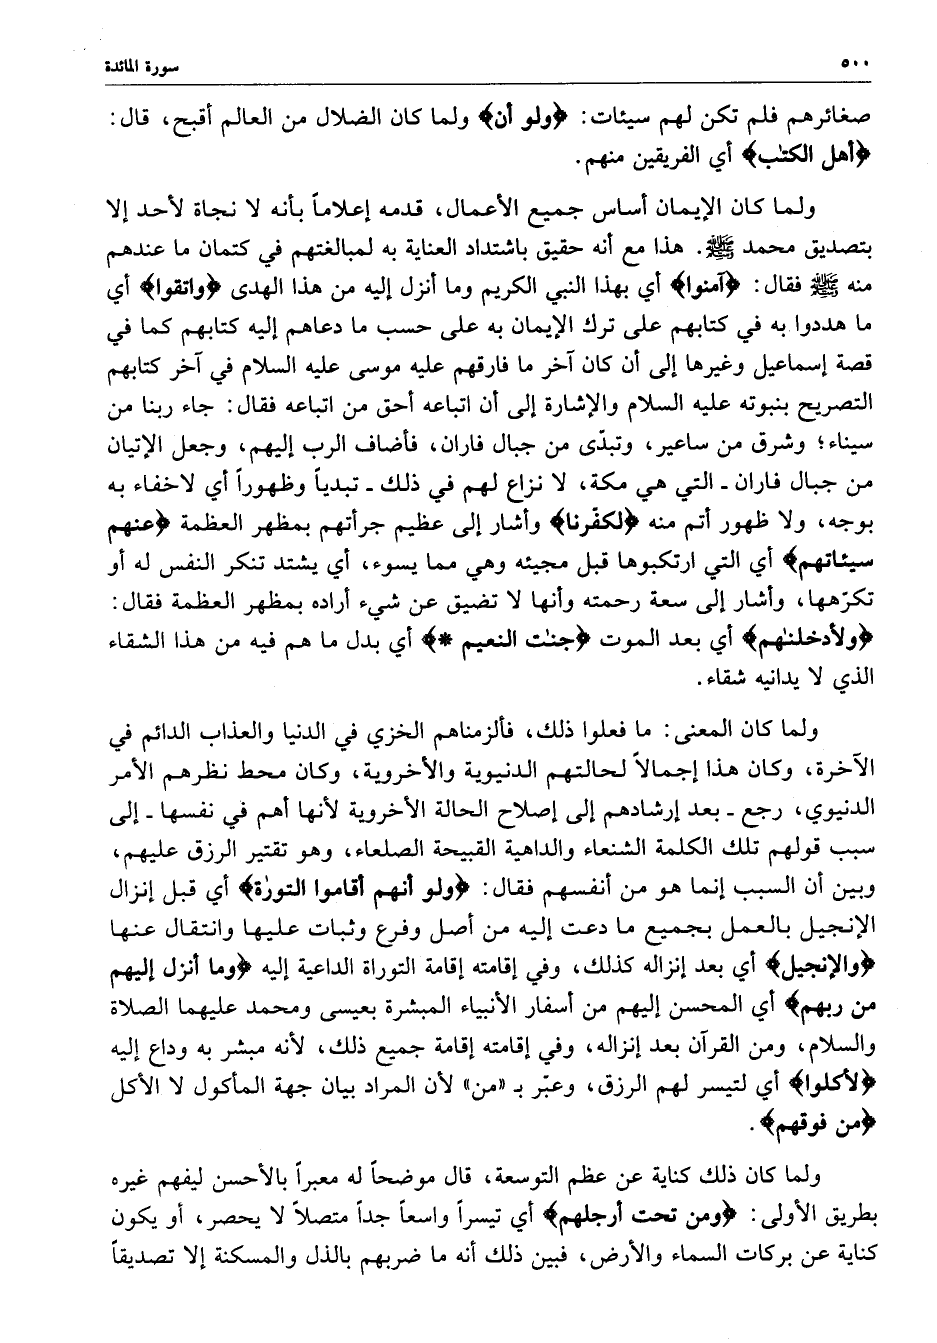 ٥٠٠
سورة المائدة
صغائرهم فلم تكن لهم سيئات: ﴿ولو أن﴾ ولما كان الضلال من العالم أقبح، قال:
﴿أهل الكتٰب﴾ أي الفريقين منهم.
ولما كان الإيمان أساس جميع الأعمال، قدمه إعلاماً بأنه لا نجاة لأحد إلا
بتصديق محمد ﷺ. هذا مع أنه حقيق باشتداد العناية به لمبالغتهم في كتمان ما عندهم
منه ﷺ فقال: ﴿آمنوا﴾ أي بهذا النبي الكريم وما أنزل إليه من هذا الهدى ﴿واتقوا﴾ أي
ما هددوا به في كتابهم على ترك الإيمان به على حسب ما دعاهم إليه كتابهم كما في
قصة إسماعيل وغيرها إلى أن كان آخر ما فارقهم عليه موسى عليه السلام في آخر كتابهم
التصريح بنبوته عليه السلام والإشارة إلى أن اتباعه أحق من اتباعه فقال: جاء ربنا من
سيناء؛ وشرق من ساعير، وتبدّى من جبال فاران، فأضاف الرب إليهم، وجعل الإتيان
من جبال فاران ـ التي هي مكة، لا نزاع لهم في ذلك ـ تبدياً وظهوراً أي لاخفاء به
بوجه، ولا ظهور أتم منه ﴿لكفّرنا﴾ وأشار إلى عظيم جرأتهم بمظهر العظمة ﴿عنهم
سيئاتهم﴾ أي التي ارتكبوها قبل مجيئه وهي مما يسوء، أي يشتد تنكر النفس له أو
تكرّهها، وأشار إلى سعة رحمته وأنها لا تضيق عن شيء أراده بمظهر العظمة فقال:
﴿ولأدخلنٰهم﴾ أي بعد الموت ﴿جنٰت النعيم *﴾ أي بدل ما هم فيه من هذا الشقاء
الذي لا يدانيه شقاء.
ولما كان المعنى: ما فعلوا ذلك، فألزمناهم الخزي في الدنيا والعذاب الدائم في
الآخرة، وكان هذا إجمالاً لحالتهم الدنيوية والأخروية، وكان محط نظرهم الأمر
الدنيوي، رجع ـ بعد إرشادهم إلى إصلاح الحالة الأخروية لأنها أهم في نفسها ـ إلى
سبب قولهم تلك الكلمة الشنعاء والداهية القبيحة الصلعاء، وهو تقتير الرزق عليهم،
وبين أن السبب إنما هو من أنفسهم فقال: ﴿ولو أنهم أقاموا التورٰة﴾ أي قبل إنزال
الإنجيل بالعمل بجميع ما دعت إليه من أصل وفرع وثبات عليها وانتقال عنها
﴿والإنجيل﴾ أي بعد إنزاله كذلك، وفي إقامته إقامة التوراة الداعية إليه ﴿وما أنزل إليهم
من ربهم﴾ أي المحسن إليهم من أسفار الأنبياء المبشرة بعيسى ومحمد عليهما الصلاة
والسلام، ومن القرآن بعد إنزاله، وفي إقامته إقامة جميع ذلك، لأنه مبشر به وداع إليه
﴿لأكلوا﴾ أي لتيسر لهم الرزق، وعبّر بـ «من» لأن المراد بيان جهة المأكول لا الأكل
﴿من فوقهم﴾.
ولما كان ذلك كناية عن عظم التوسعة، قال موضحاً له معبراً بالأحسن ليفهم غيره
بطريق الأولى: ﴿ومن تحت أرجلهم﴾ أي تيسراً واسعاً جداً متصلاً لا يحصر، أو يكون
كناية عن بركات السماء والأرض، فبين ذلك أنه ما ضربهم بالذل والمسكنة إلا تصديقاً